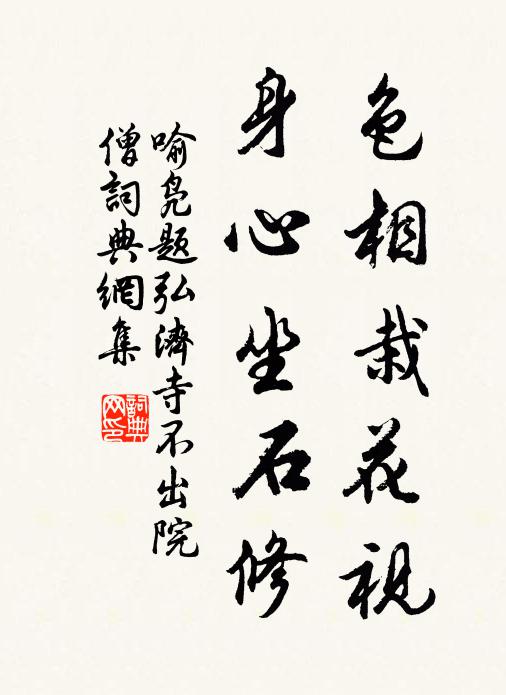 色相栽花視
身心坐石修
喻凫題弘濟寺不出院
僧詞典網集
詞典
网印